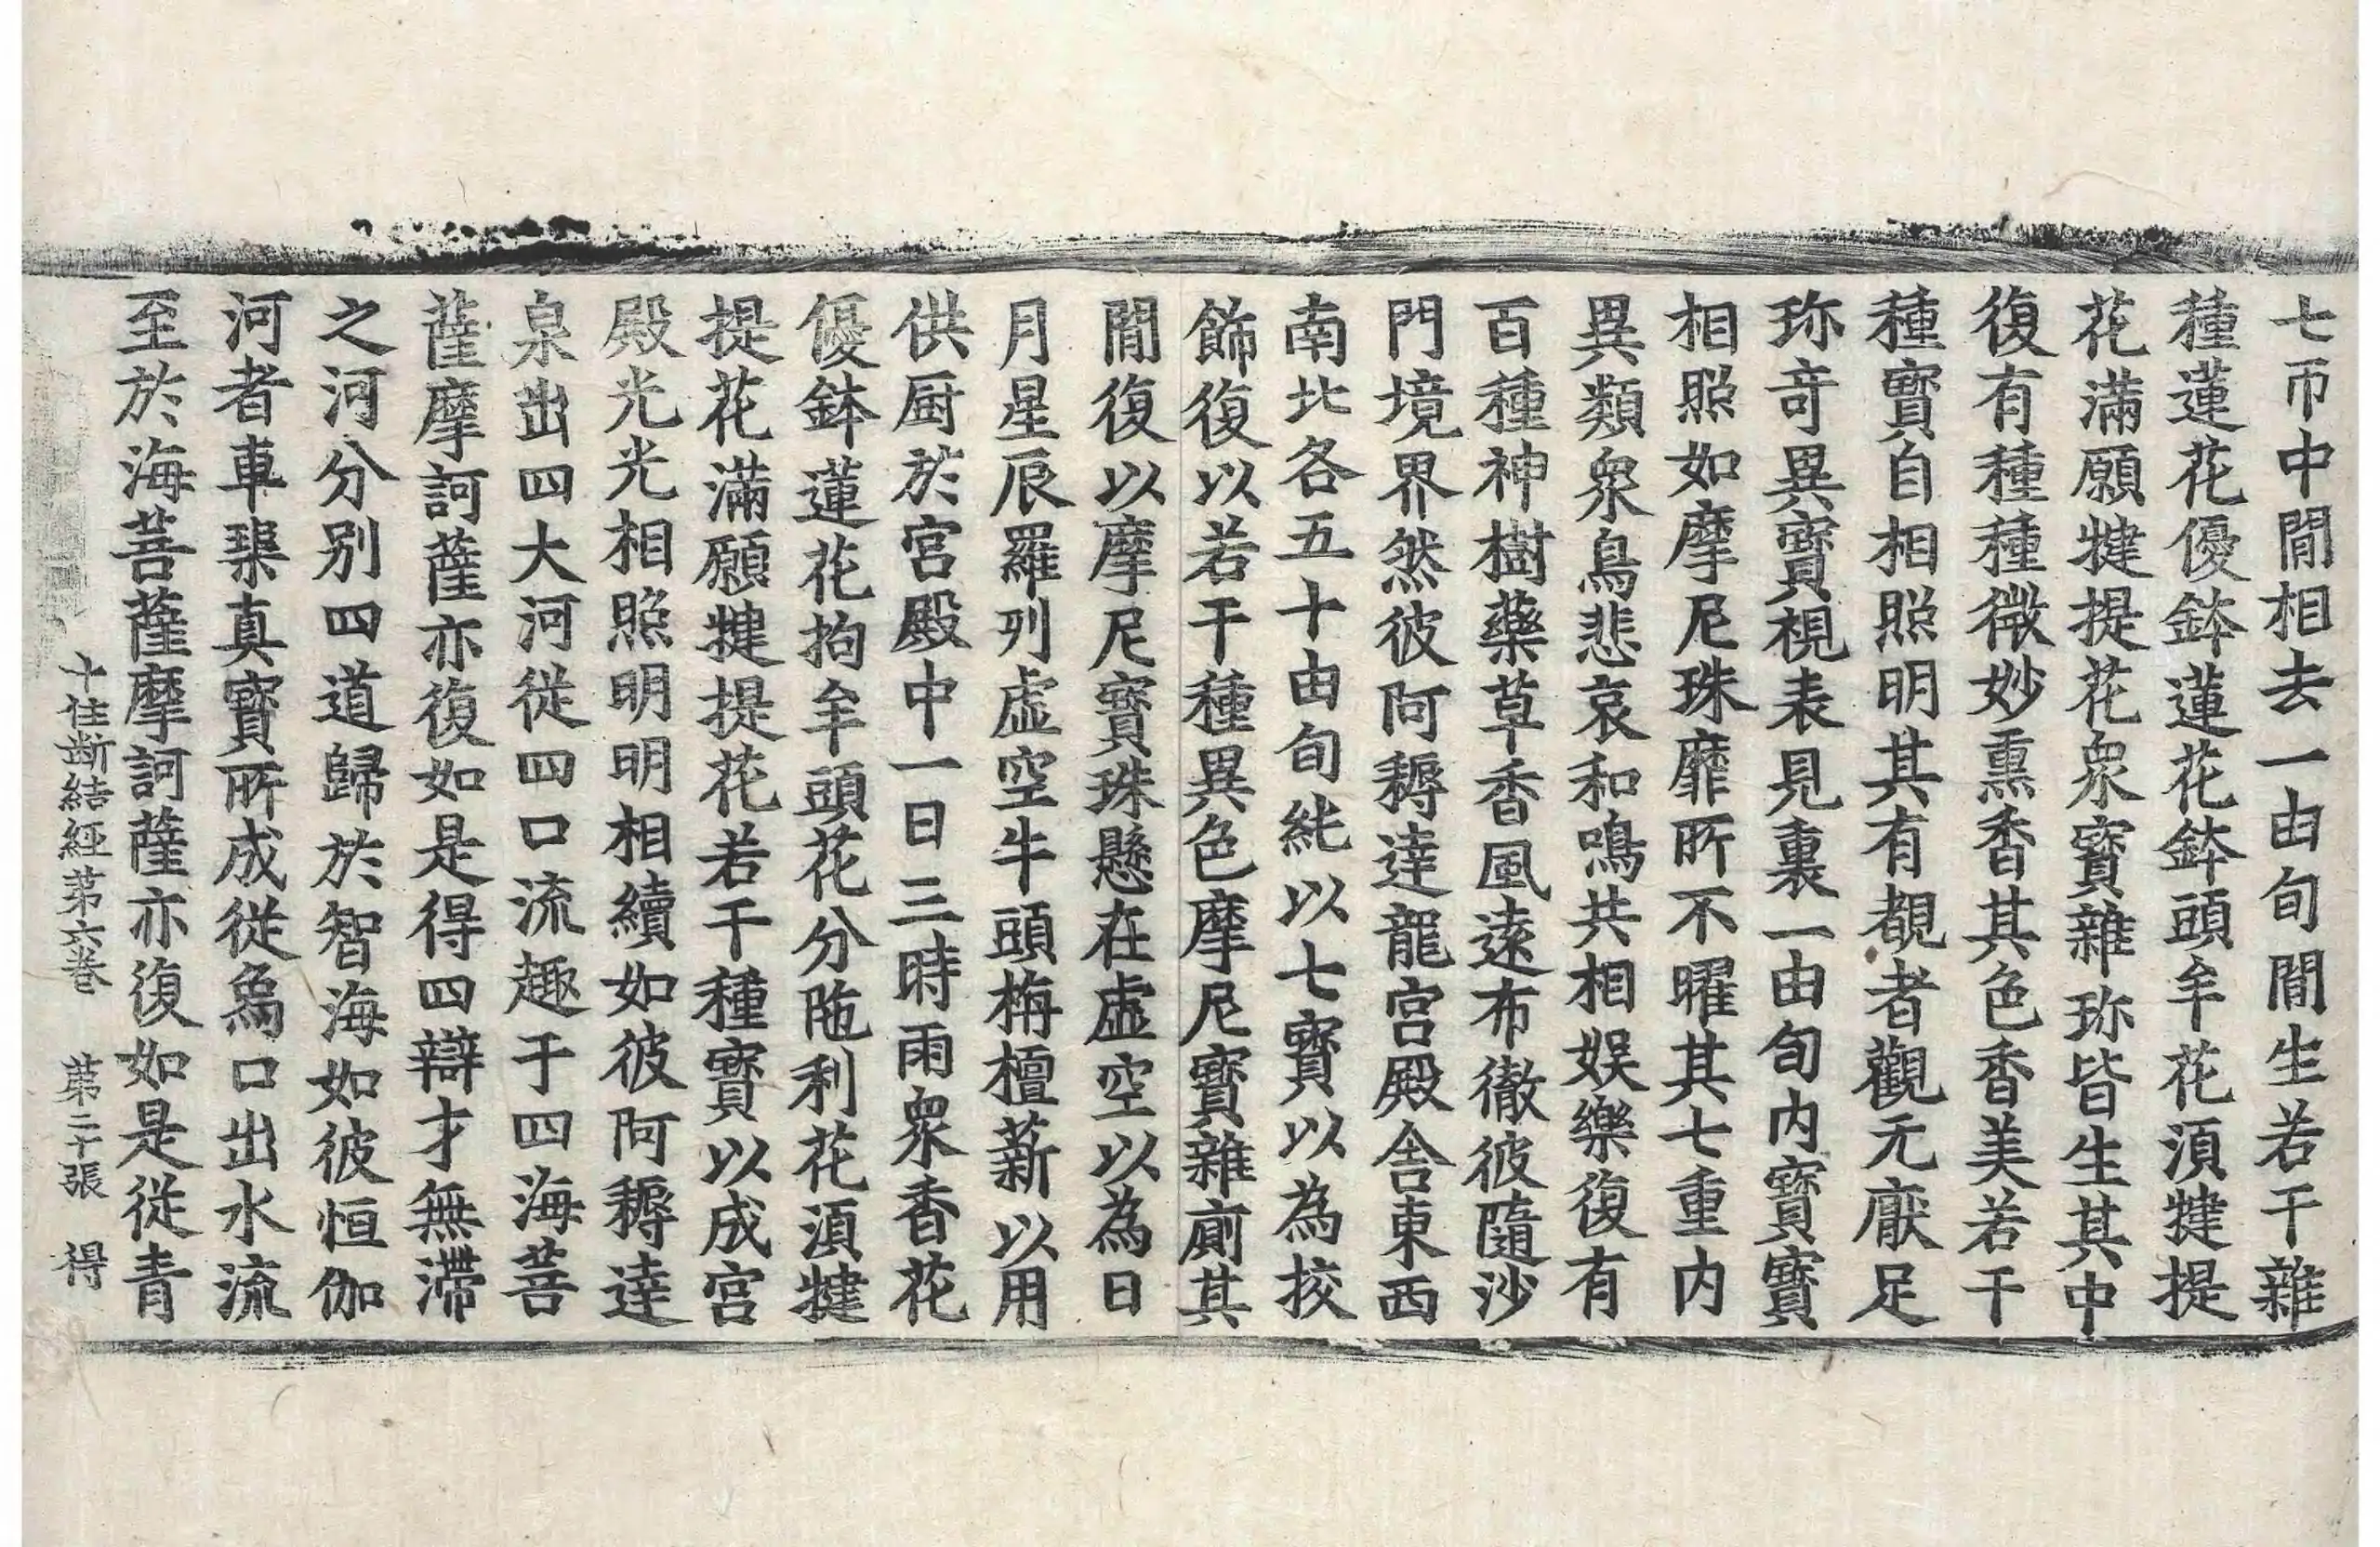 七帀中間相去一由旬間生若干雜
種蓮花優鉢蓮花鉢頭牟花湏揵提
花滿願揵提花衆寶雜珎皆生其中
復有種種微妙熏香其色香美若干
種寶自相照明其有覩者觀无厭足
珎竒異寶視表見裏一由旬内寶寶
相照如摩尼珠靡所不曜其七重内
異類衆鳥悲哀和鳴共相娱樂復有
百種神樹藥草香風遠布徹彼隨沙
門境界然彼阿耨達龍宮殿舍東西
南北各五十由旬純以七寶以為挍
飾復以若干種異色摩尼寶雜廁其
間復以摩尼寶珠懸在虛空以為日
月星辰羅列虛空牛頭栴檀薪以用
供厨於宮殿中一日三時雨衆香花
優鉢蓮花拘牟頭花分陁利花湏揵
提花滿願揵提花若干種寶以成宮
殿光光相照明明相續如彼阿耨達
泉出四大河從四口流趣于四海菩
薩摩訶薩亦復如是得四辯才無滯
之河分别四道歸於智海如彼恒伽
河者車𤦲真寶所成從烏口出水流
至於海菩薩摩訶薩亦復如是從青
十住断結經第六卷 第二十張 得